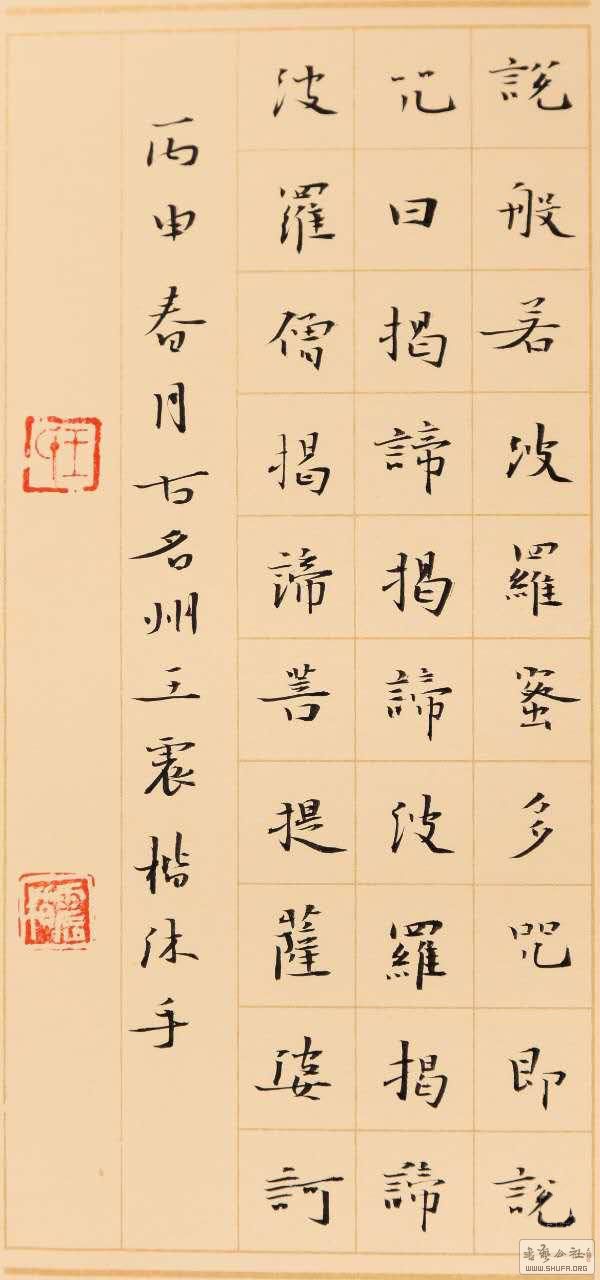 說般若波羅蜜多咒即說
咒曰揭諦揭諦波羅揭諦
波羅僧揭諦菩提薩婆訶
丙申春月古名州王震楷沐手
书艺公社
WWW.SHUFA.ORG